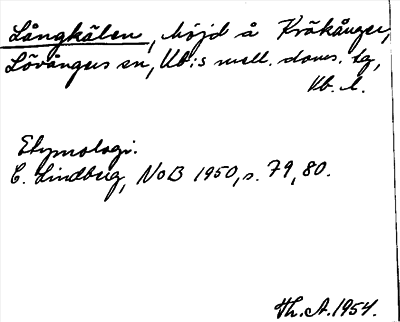 Långkälen, höjd å Kräkånger,
Lövångers sn, Vb:s mell. doms. tg,
Vb. l.
Etymologi:
C. Lindberg, NoB 1950, s. 79, 80.
Th. A. 1954.